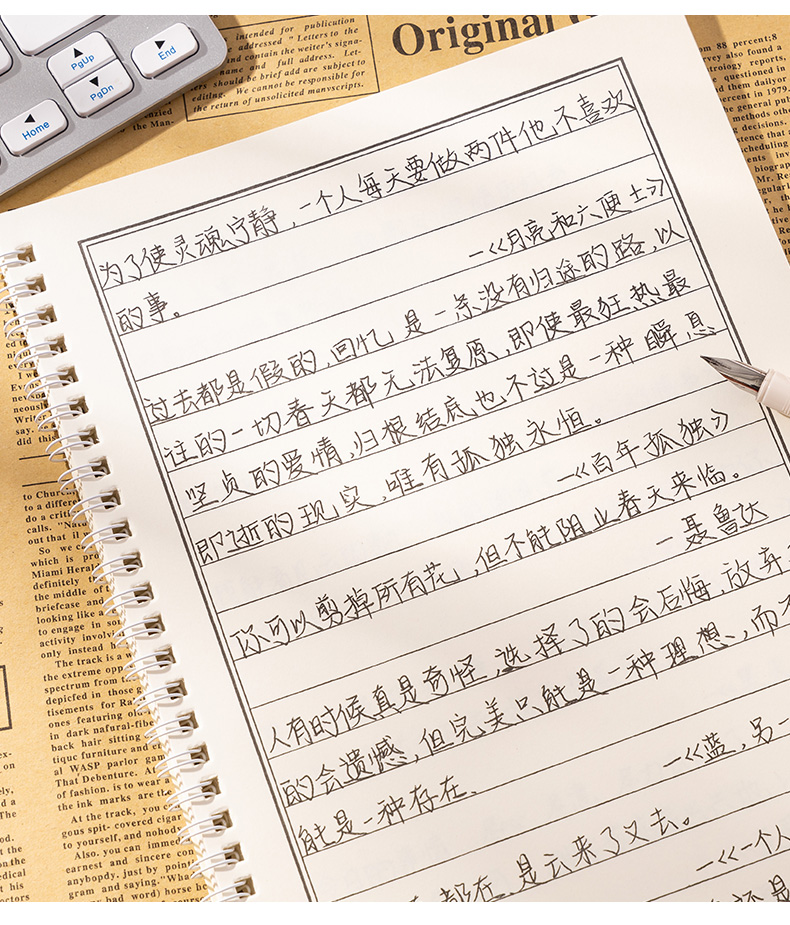 PgUp
End
PgDn
Home
intended for publication
addressed " Letters to the
and contain the weiter's signa-
name and full address. Let-
ers should be brief add are subject to
editing. We cannot be responsible for
the return of unsolicited manvscripts.
Original
为了使灵魂宁静，一个人每天要做两件他不喜欢
的事。
—《月亮和六便士》
过去都是假的，回忆是一条没有归途的路，以
往的一切春天都无法复原，即使最狂热最
坚贞的爱情，归根结底也不过是一种瞬息
即逝的现实，唯有孤独永恒。
—《百年孤独》
你可以剪掉所有花，但不能阻止春天来临。
—聂鲁达
人有时候真是奇怪，选择了的会后悔，放弃
的会遗憾，但完美只能是一种理想，而
能是一种存在.
—《蓝，另一
都在，是云来了又去。
—《一个人
to Church
to a differe
do a critic
calls. "Nat
out that it
So we ca
which is pro
Miami Heral
definitely
the middle of
briefcase and
looking like a
to engage in so
activity involvi
only instead h
The track is a w
the extreme opp
spectrum from th
depicfed in those
tisements for Ra
ones featuring old
in dark natural-fibe
back hair sitting
tiquc furniture and
al WASP parlor gam
That Debenture. At
of fashion. is to wear a
the ink marks are tha
At the track, you c
gous spit- covercd cigar
to yourself, and nobody
Also. you can immed
earnest and sincere con
anybopdy. just by point
gram and saying."Wha
bad word) horse h